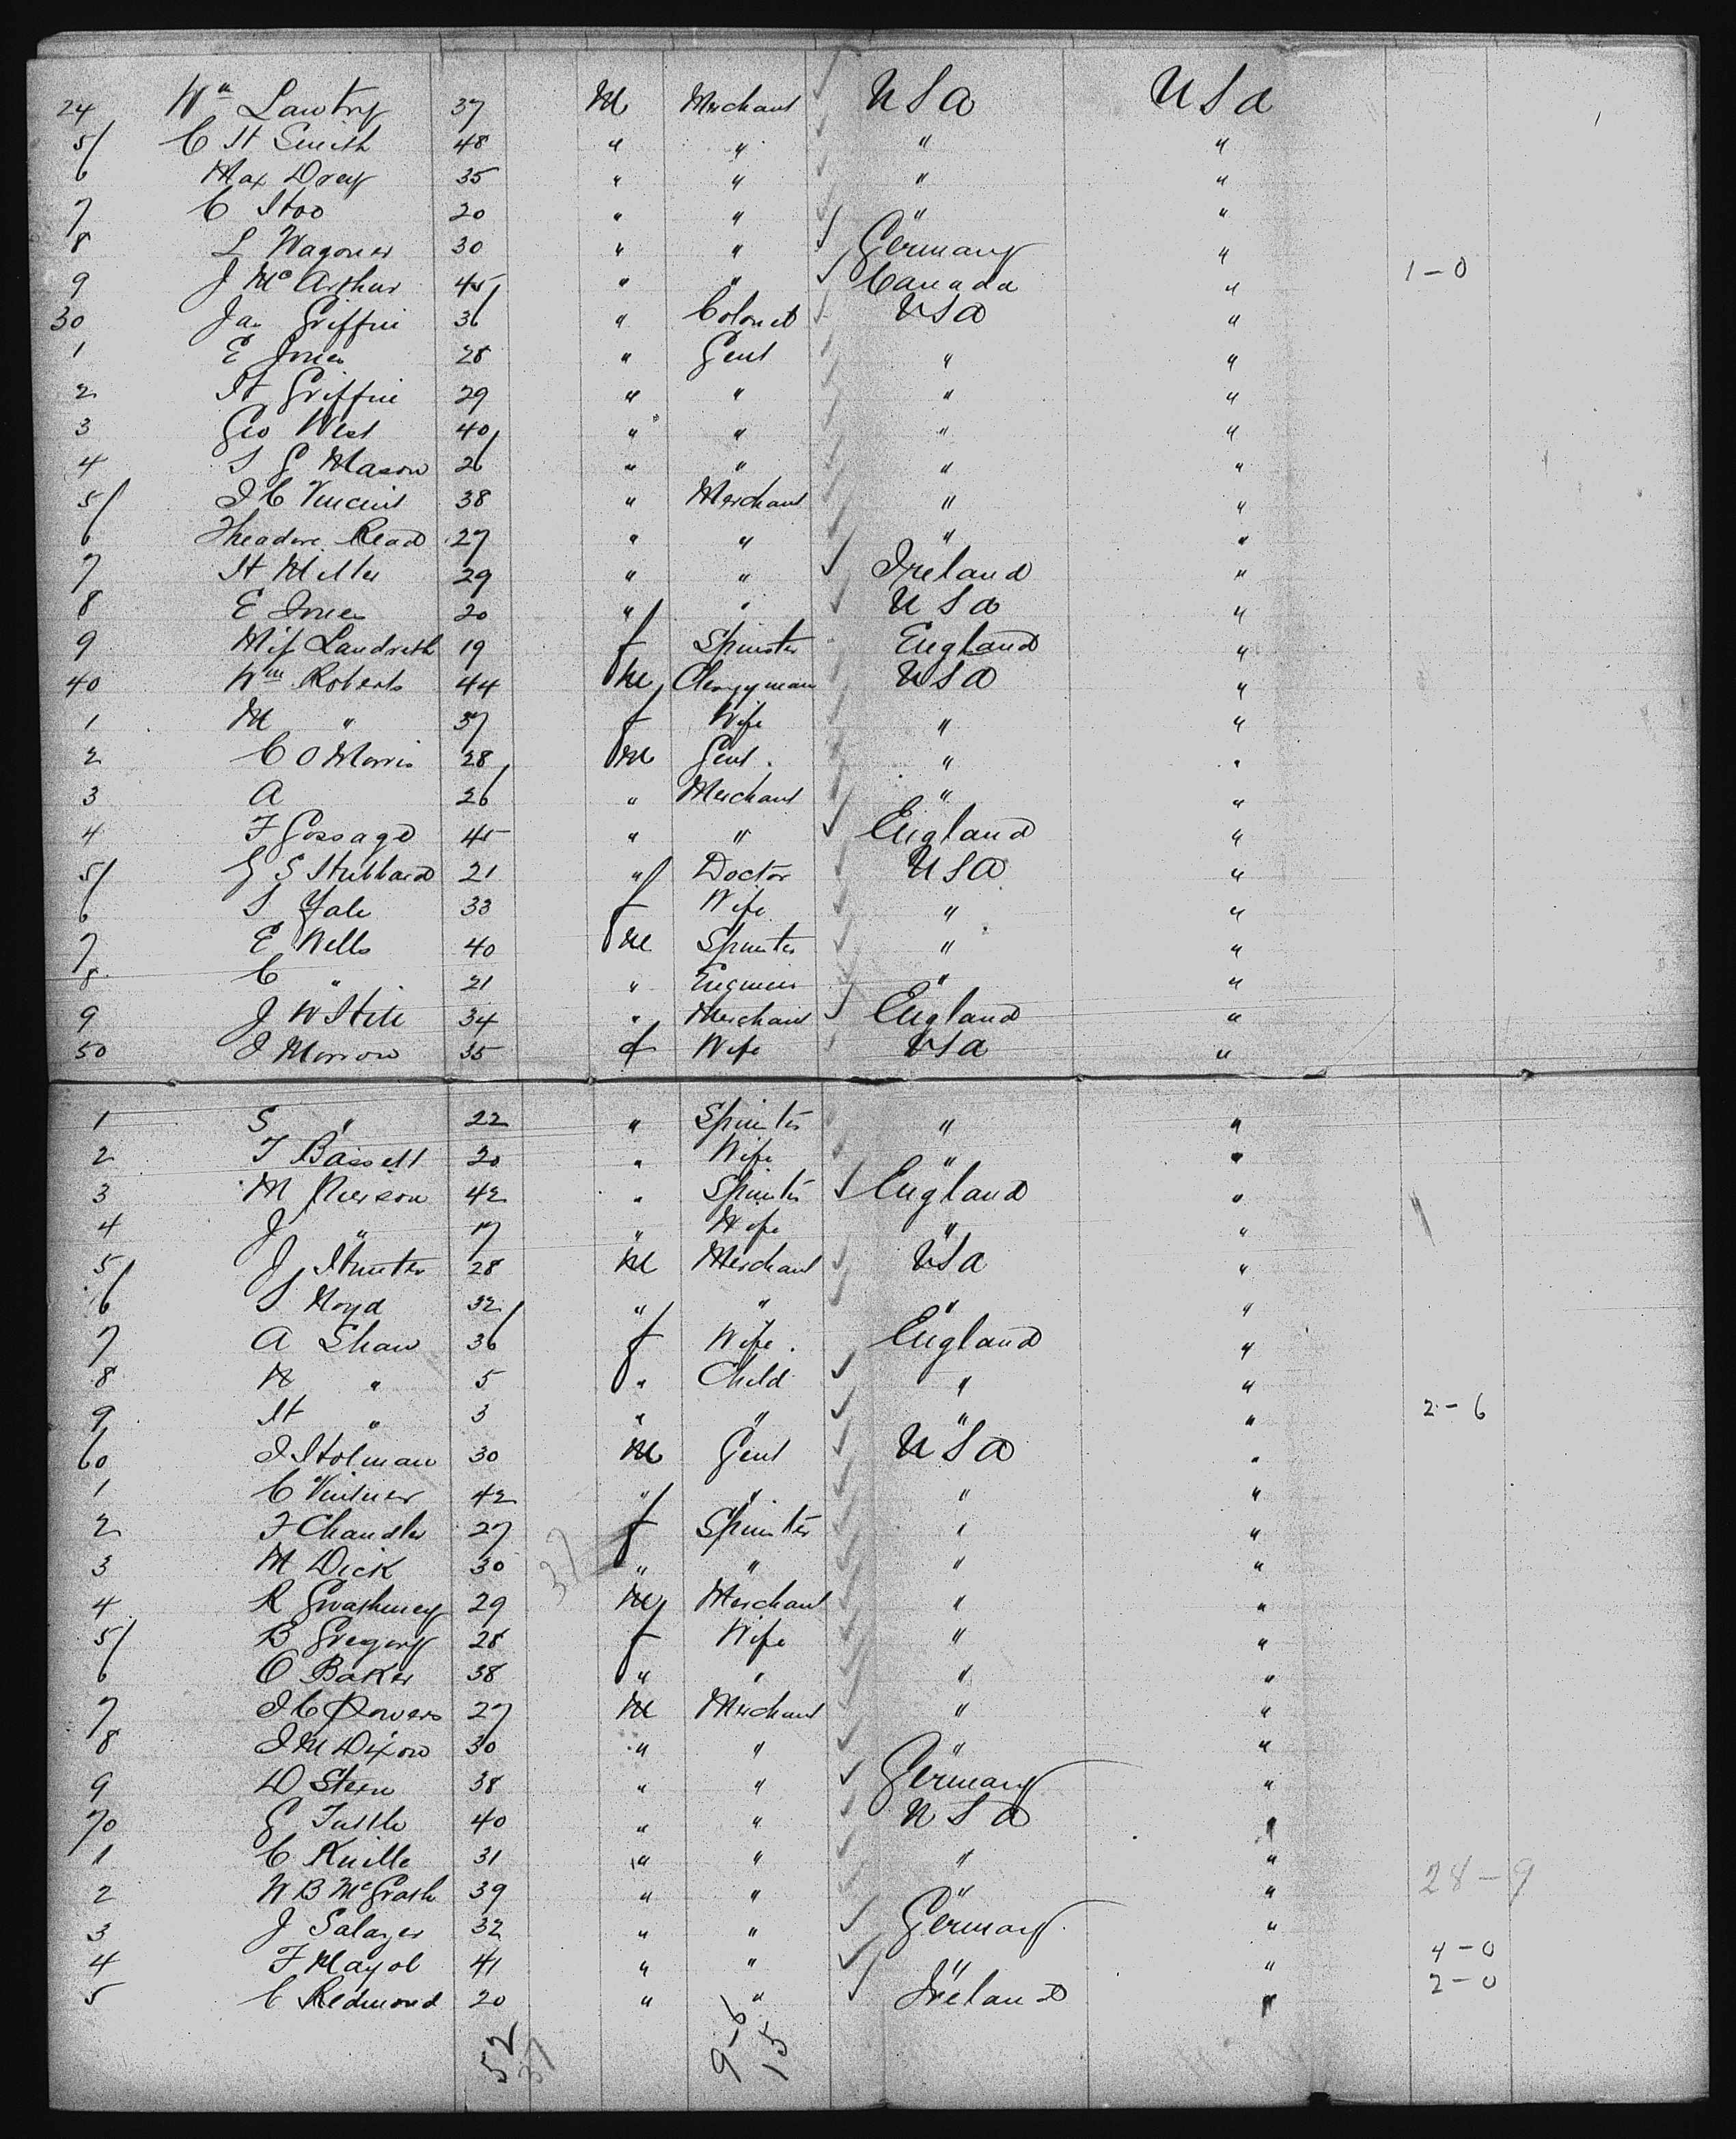 24 Wm Lawtry 37 M Merchant USA USA
5 C H Smith 48 " " " "
6 Max Drey 35 " " " "
7 C Hoo 20 " " " "
8 L Wagoner 30 " " Germany "
9 J McArthur 45 " " Canada " 1-0
30 Jas Griffin 36 " Colonel USA "
1 E Jones 28 " Gent " "
2 H Griffin 29 " " " "
3 Geo West 40 " " " "
4 S G Mason 26 " " " "
5 J C Vincent 38 " Merchant " "
6 Theadore Read 27 " " " "
7 H Miller 29 " " Ireland "
8 E Jones 20 " " USA "
9 Miss Landreth 19 f Spinster England "
40 Wm Roberts 44 M Clergyman USA "
1 M " 37 f Wife " "
2 C O Morris 28 M Gent. " "
3 A 26 " Merchant " "
4 F Gossage 45 " " England "
5 G S Hubbard 21 " Doctor USA "
6 S Yale 33 f Wife " "
7 E Wells 40 M Spinster " "
8 C " 21 " Engineer " "
9 J W Hill 34 " Merchant England "
50 J Morrow 35 f Wife USA "
1 S " 22 " Spinster " "
2 T Bassett 20 " Wife " "
3 M Pierson 42 " Spinster England "
4 J " 17 " Wife " "
5 J Hunter 28 M Merchant USA "
6 S Hoyd 32 " " " "
7 A Shaw 36 f Wife. England "
8 N " 5 " Child " "
9 H " 3 " " " " 2-6
60 J Holman 30 M Gent USA "
1 C Vintner 42 " " " "
2 F Chandler 27 f Spinster " "
3 M Dick 30 37 " " " "
4 R Gwathmey 29 M Merchant " "
5 B Gregory 28 f Wife " "
6 O Baker 38 " " " "
7 J C Powers 27 M Merchant " "
8 J M Dixon 30 " " " "
9 D Stern 38 " " Germany "
70 G Tuttle 40 " " USA "
1 C Knille 31 " " " "
2 W B McGrath 39 " " " " 28-9
3 J Salazer 32 " " Germany "
4 F Mayol 41 " " " " 4-0
5 C Redmond 20 " " Ireland " 2-0
52 9-6
37 15